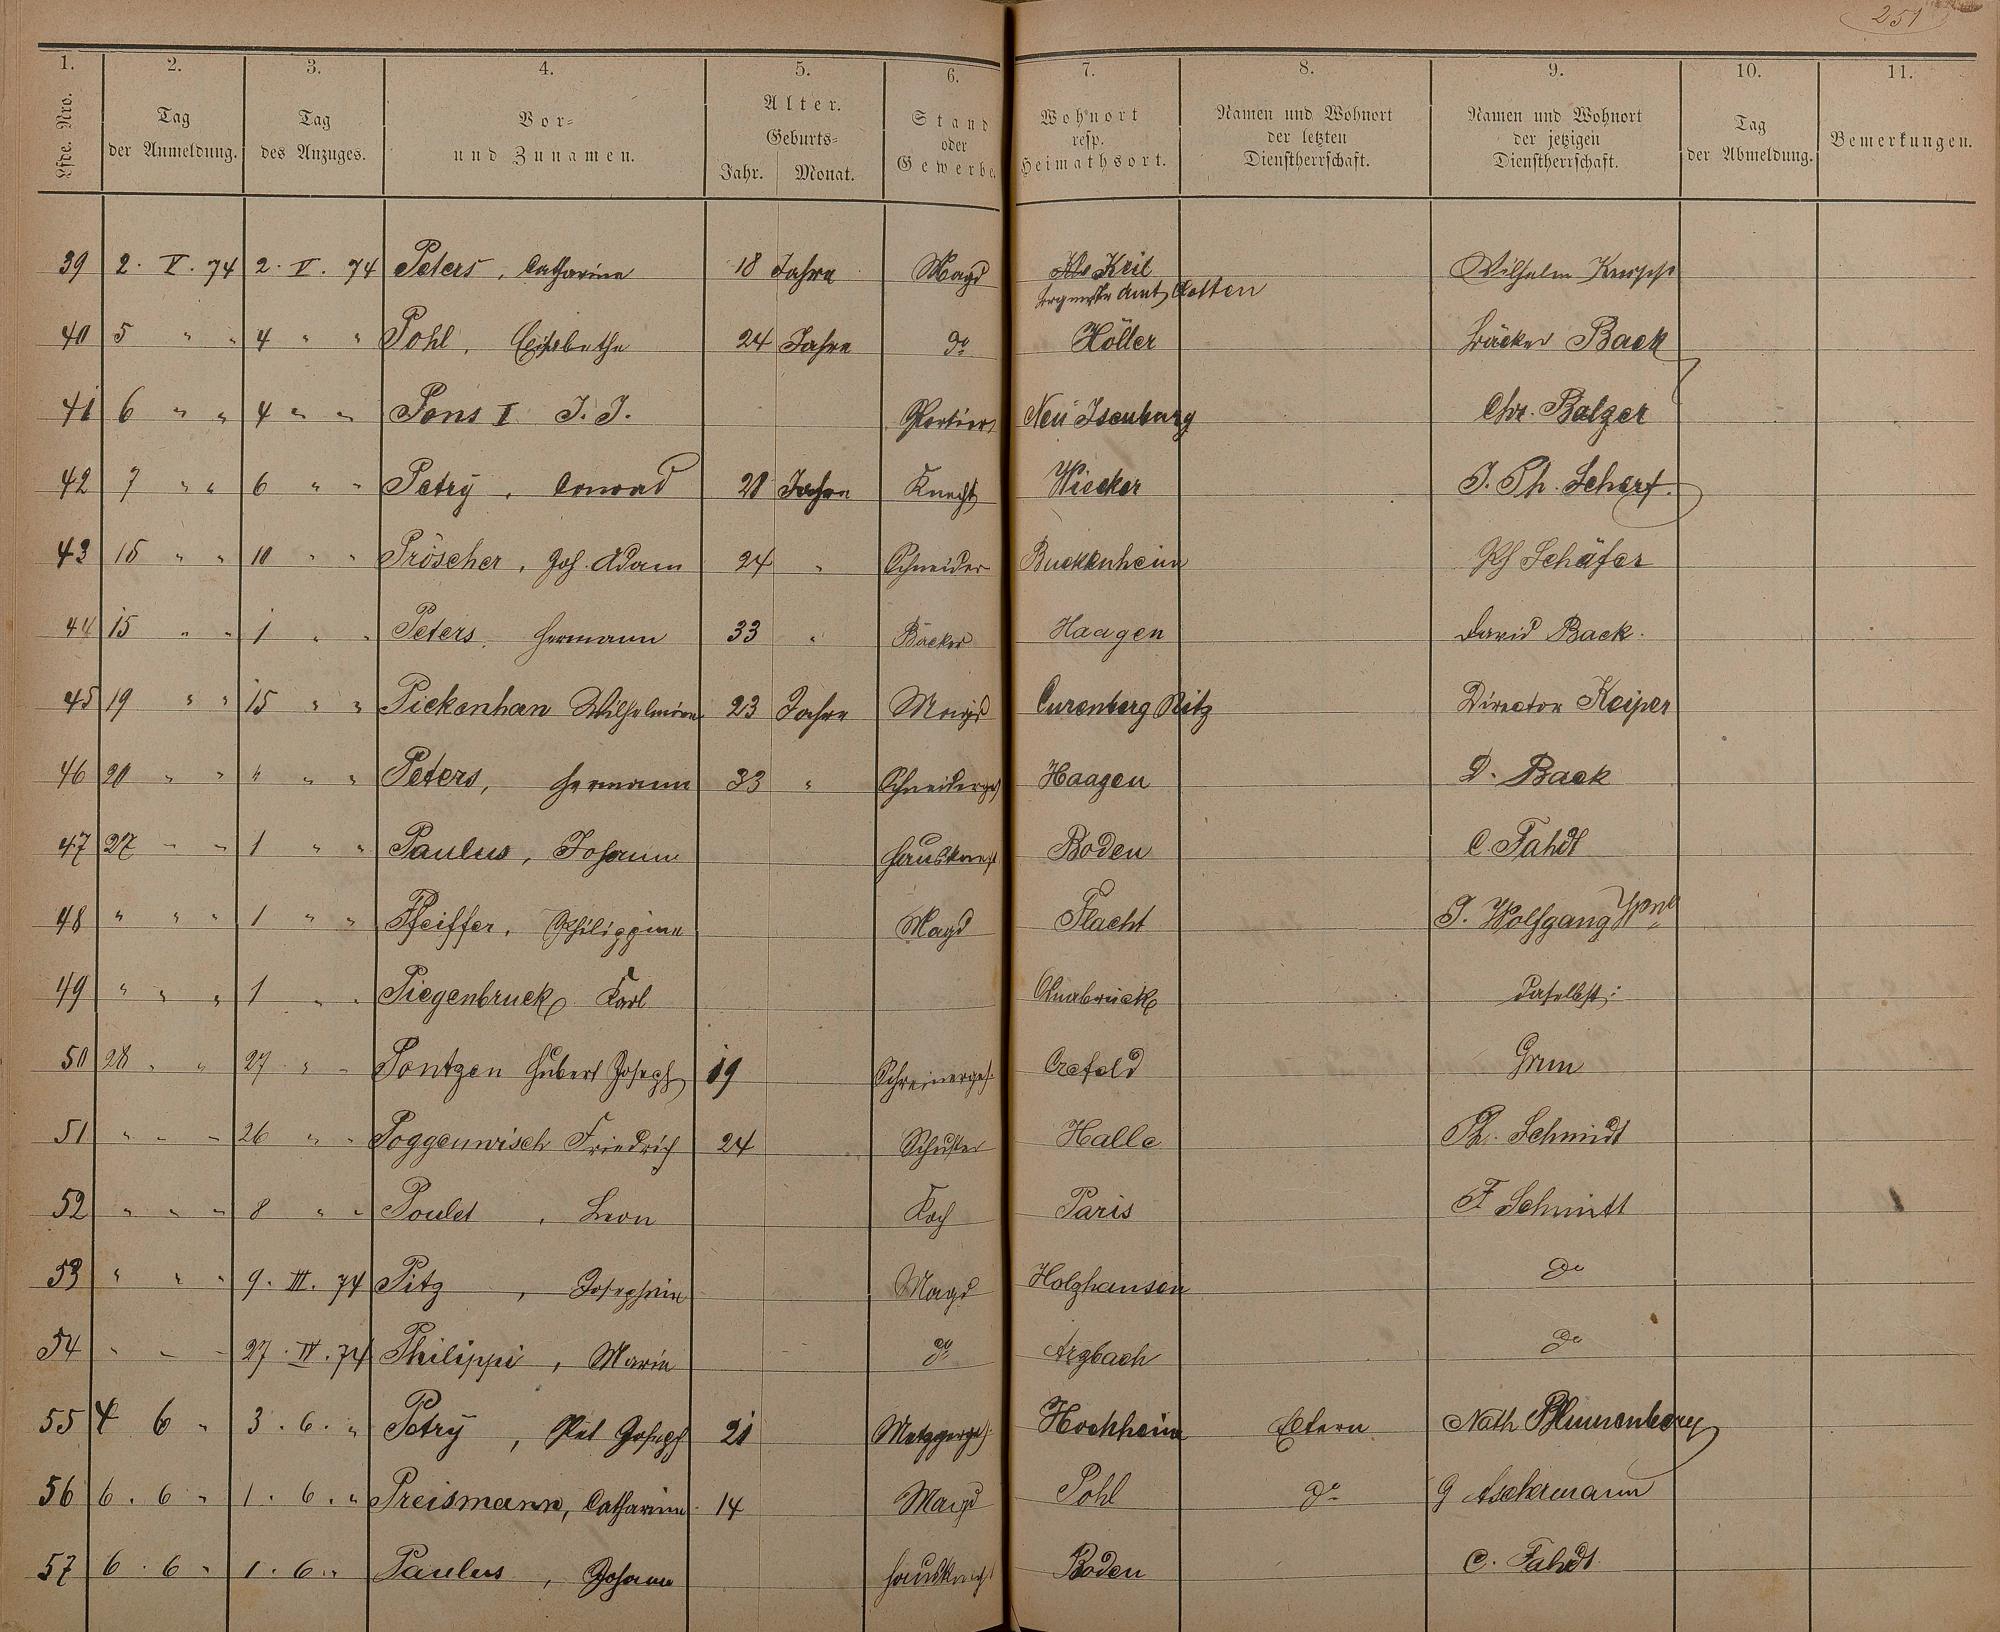 251
1. 2. 3. 4. 5. 6. 7. 8. 9. 10. 11.
Lfde. Nro. Tag der Anmeldung. Tag des Anzuges. Vor- und Zunamen. Alter. Geburts- Jahr. Monat. Stand oder Gewerbe. Wohnort resp. Heimathsort. Namen und Wohnort der letzten Dienstherrschaft. Namen und Wohnort der jetzigen Dienstherrschaft. Tag der Abmeldung. Bemerkungen.
39 2. V. 74 2. V. 74 Peters, Catharine 18 Jahre Magd Keil Wilhelm
Amt
40 5 " " 4 " " Pohl, Elisabethe 24 Jahre do Höller Bäcker Back
41 6 " " 4 " " Pons I J. J. Portier Neu Isenburg Chr. Balzer
42 7 " " 6 " " Petry, Conrad 28 Jahre Knecht Wicker J. Ph. Scherf.
43 15 " " 10 " " Pröscher, Joh. Adam 24 " Schneider Buckenheim Ph Schäfer
44 15 " " 1 " " Peters, Hermann 33 " Bäcker Haagen David Back.
45 19 " " 15 " " Pickenhan Wilhelmine 23 Jahre Magd Curenberg Director Keiper
46 20 " " " " " Peters, Hermann 33 " Schneiderges Haagen D. Back
47 27 " " 1 " " Paulus, Johann Hausknecht Boden C. Fahdt
48 " " " 1 " " Pfeiffer, Philippine Magd Flacht J. Wolfgang
49 " " " 1 " " Piegenbruck Karl Osnabrück daselbst:
50 28 " " 27 " " Pontzen Hubert Joseph 19 Schreinerges. Crefeld Grun
51 " " " 26 " " Poggenwisch Friedrich 24 Schuster Halle Ph. Schmidt
52 " " " 8 " " Poulet, Leon Koch Paris F Schmitt
53 " " " 9. III. 74 Pitz, Josephine Magd Holzhausen do
54 " " " 27. IV. 74 Philippi, Marie do Arzbach do
55 4 6 " 3. 6. " Petry, Pet Joseph 21 Metzgerges. Hochheim Eltern Nath Blumenberg
56 6. 6 " 1. 6. " Preismann, Catharine 14 Magd Pohl do G Ackermann
57 6. 6 " 1. 6 " Paulus, Johann Hausknecht Boden C. Fahdt.